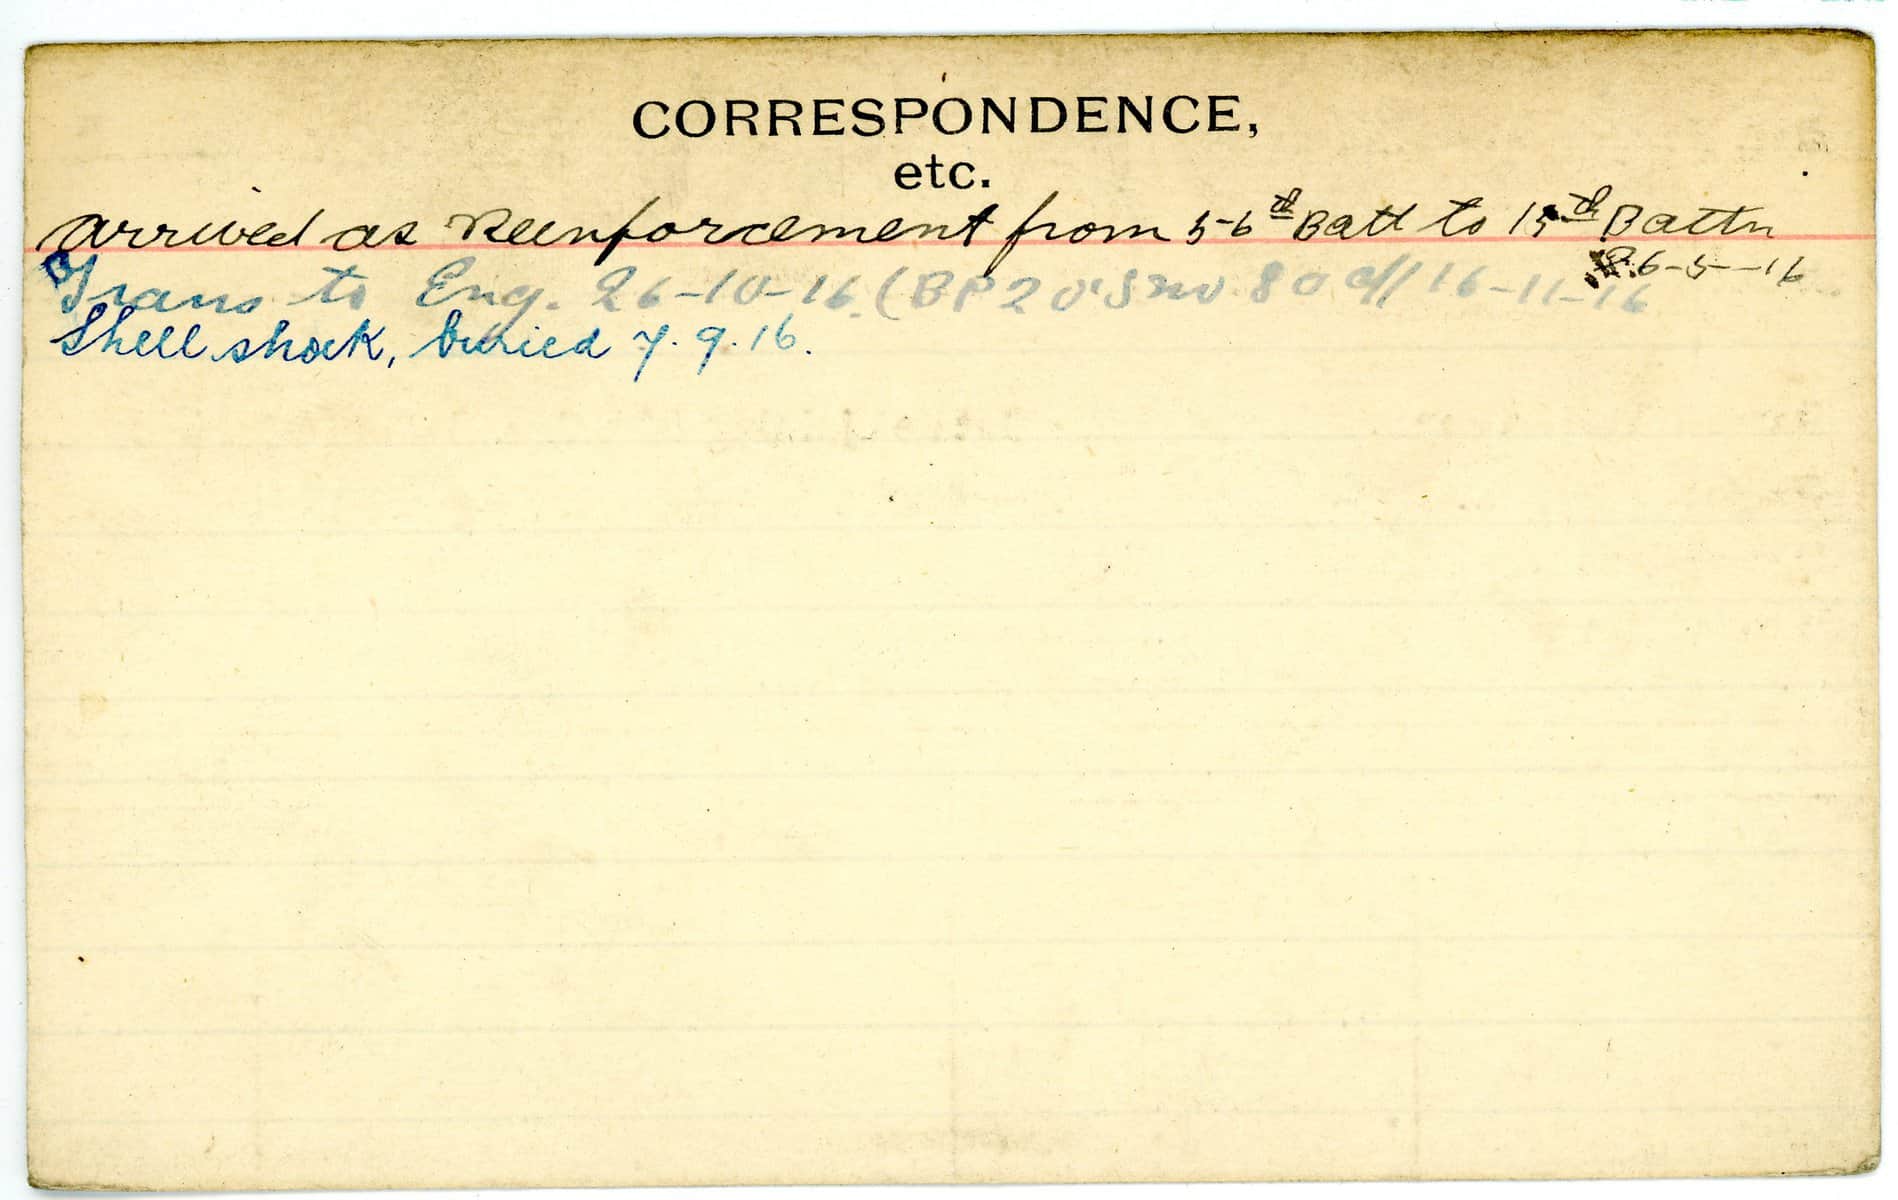 CORRESPONDENCE,
etc.
arrived as Reenforcement from 56th Batt to 15th Battn
26-5-16
Trans to Eng. 26-10-16. (BP2 O's 80 d// 16-11-16
Shell shock, buried 7.9.16.